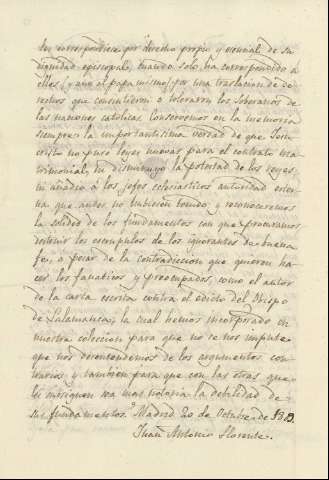 les correspondiera por derecho propio y esencial de su
dignidad episcopal, cuando solo ha correspondido à
ellos (y aun al papa mismo) por una traslacion de de-
rechos que consintieron o toleraron los soberanos de
las naciones catolicas. Conservemos en la memoria
siempre la importantisima verdad de que Jesu-
cristo no puso leyes nuevas para el contrato ma-
trimonial, ni disminuyo la potestad de los reyes,
ni añadio à los jefes eclesiasticos autoridad exter-
na que antes no hubiesen tenido, y reconoceremos
la solidez de los fundamentos con que procuramos
destruir los escrupulos de los ignorantes de buena
fe, a pesar de la contradiccion que quieren ha-
cer los fanaticos y preocupados, como el autor
de la carta escrita contra el edicto del Obispo
de Salamanca, la cual hemos incorporado en
nuestra coleccion para que no se nos impute
que nos desentendemos de los argumentos con-
trarios y tambien para que con las otras que
le siguen sea mas notoria la debilidad de
sus fundamentos. Madrid 20 de Octubre de
Juan Antonio Llorente.